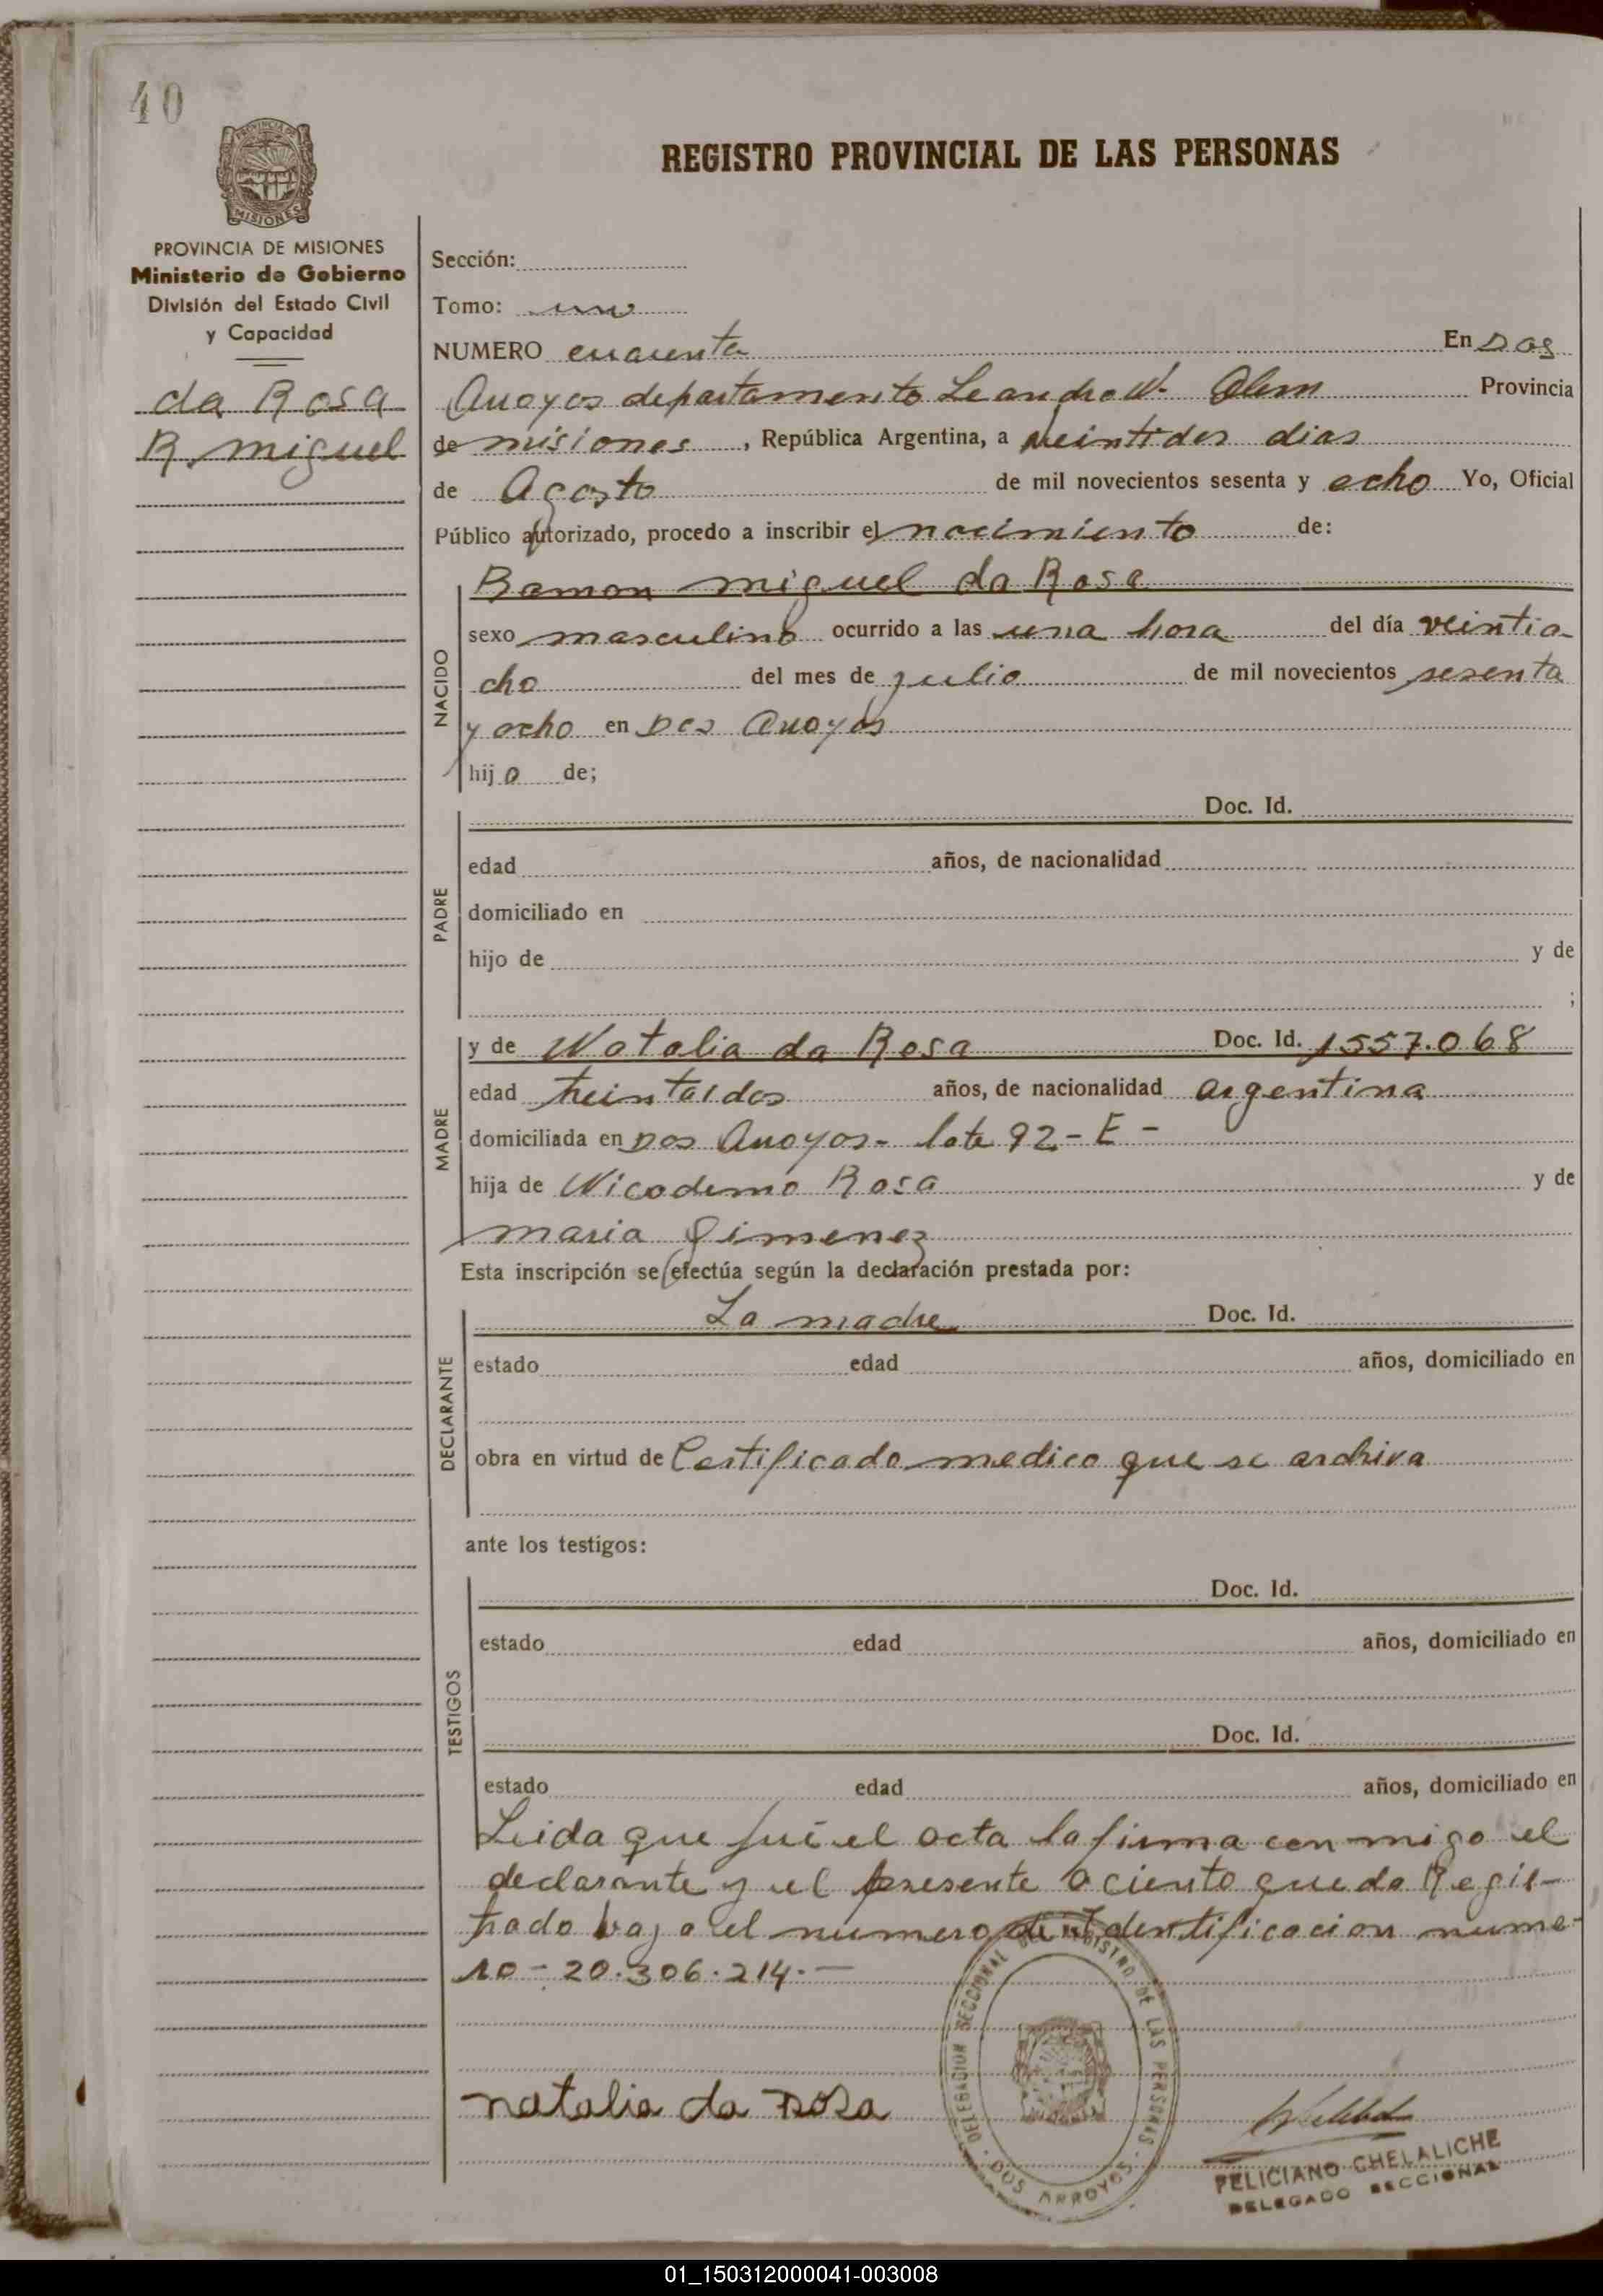 40
REGISTRO PROVINCIAL DE LAS PERSONAS
PROVINCIA DE MISIONES
MISIONES
PROVINCIA DE MISIONES
Ministerio de Gobierno
División del Estado Civil
y Capacidad
da Rosa
R. miguel
Sección:
Tomo: uno
NUMERO cuarenta En Dos
Arroyos departamento Leandro N. Alem Provincia
de misiones, República Argentina, a veintidos dias
de Agosto de mil novecientos sesenta y ocho Yo, Oficial
Público autorizado, procedo a inscribir el nacimiento de:
NACIDO
Ramon miguel da Rosa
sexo masculino ocurrido a las una hora del día veintio-
cho del mes de julio de mil novecientos sesenta
y ocho en Dos Arroyos
hijo de;
PADRE
Doc. Id.
edad años, de nacionalidad
domiciliado en
hijo de y de
;
MADRE
y de Natalia da Rosa Doc. Id. 1557.068
edad treintaidos años, de nacionalidad argentina
domiciliada en Dos Arroyos - lote 92 - E -
hija de Nicodemo Rosa y de
maria Gimenez
Esta inscripción se efectúa según la declaración prestada por:
DECLARANTE
La madre Doc. Id.
estado edad años, domiciliado en
obra en virtud de Certificado medico que se archiva
ante los testigos:
TESTIGOS
Doc. Id.
estado edad años, domiciliado en
Doc. Id.
estado edad años, domiciliado en
Leida que fué el acta la firma conmigo el
declarante y el presente aciento queda Regis-
trado bajo el numero de identificacion nume-
ro - 20.306.214.-
natalia da Rosa
DELEGACION SECCIONAL DEL REGISTRO DE LAS PERSONAS
DOS ARROYOS
FELICIANO CHELALICHE
DELEGADO SECCIONAL
01_150312000041-003008